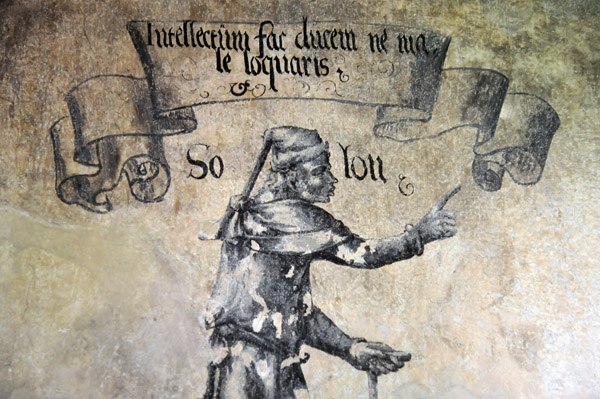 Intellectūm fac ducem nē ma,
le loquaris.
So lon